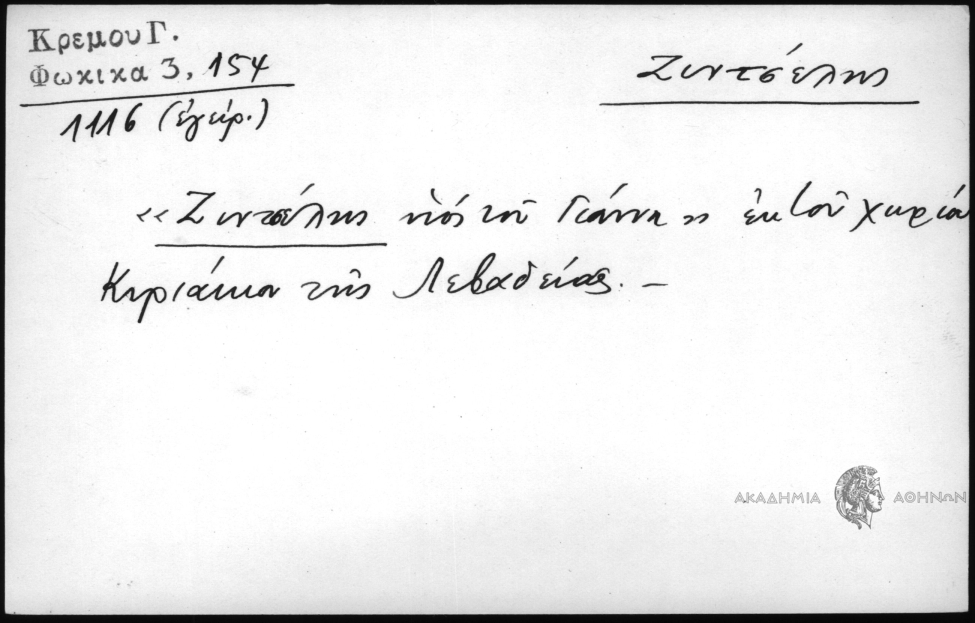 Κρεμου Γ.
Φωκικα 3, 154
1116 (ἐγειρ.)
Ζιντσέλης
«Ζιντσέλης υἱός τοῦ Γιάννη» ἐκ τοῦ χωρίο
Κυριάκιον τῆς Λεβαδείας. –
ΑΚΑΔΗΜΙΑ ΑΘΗΝΩΝ